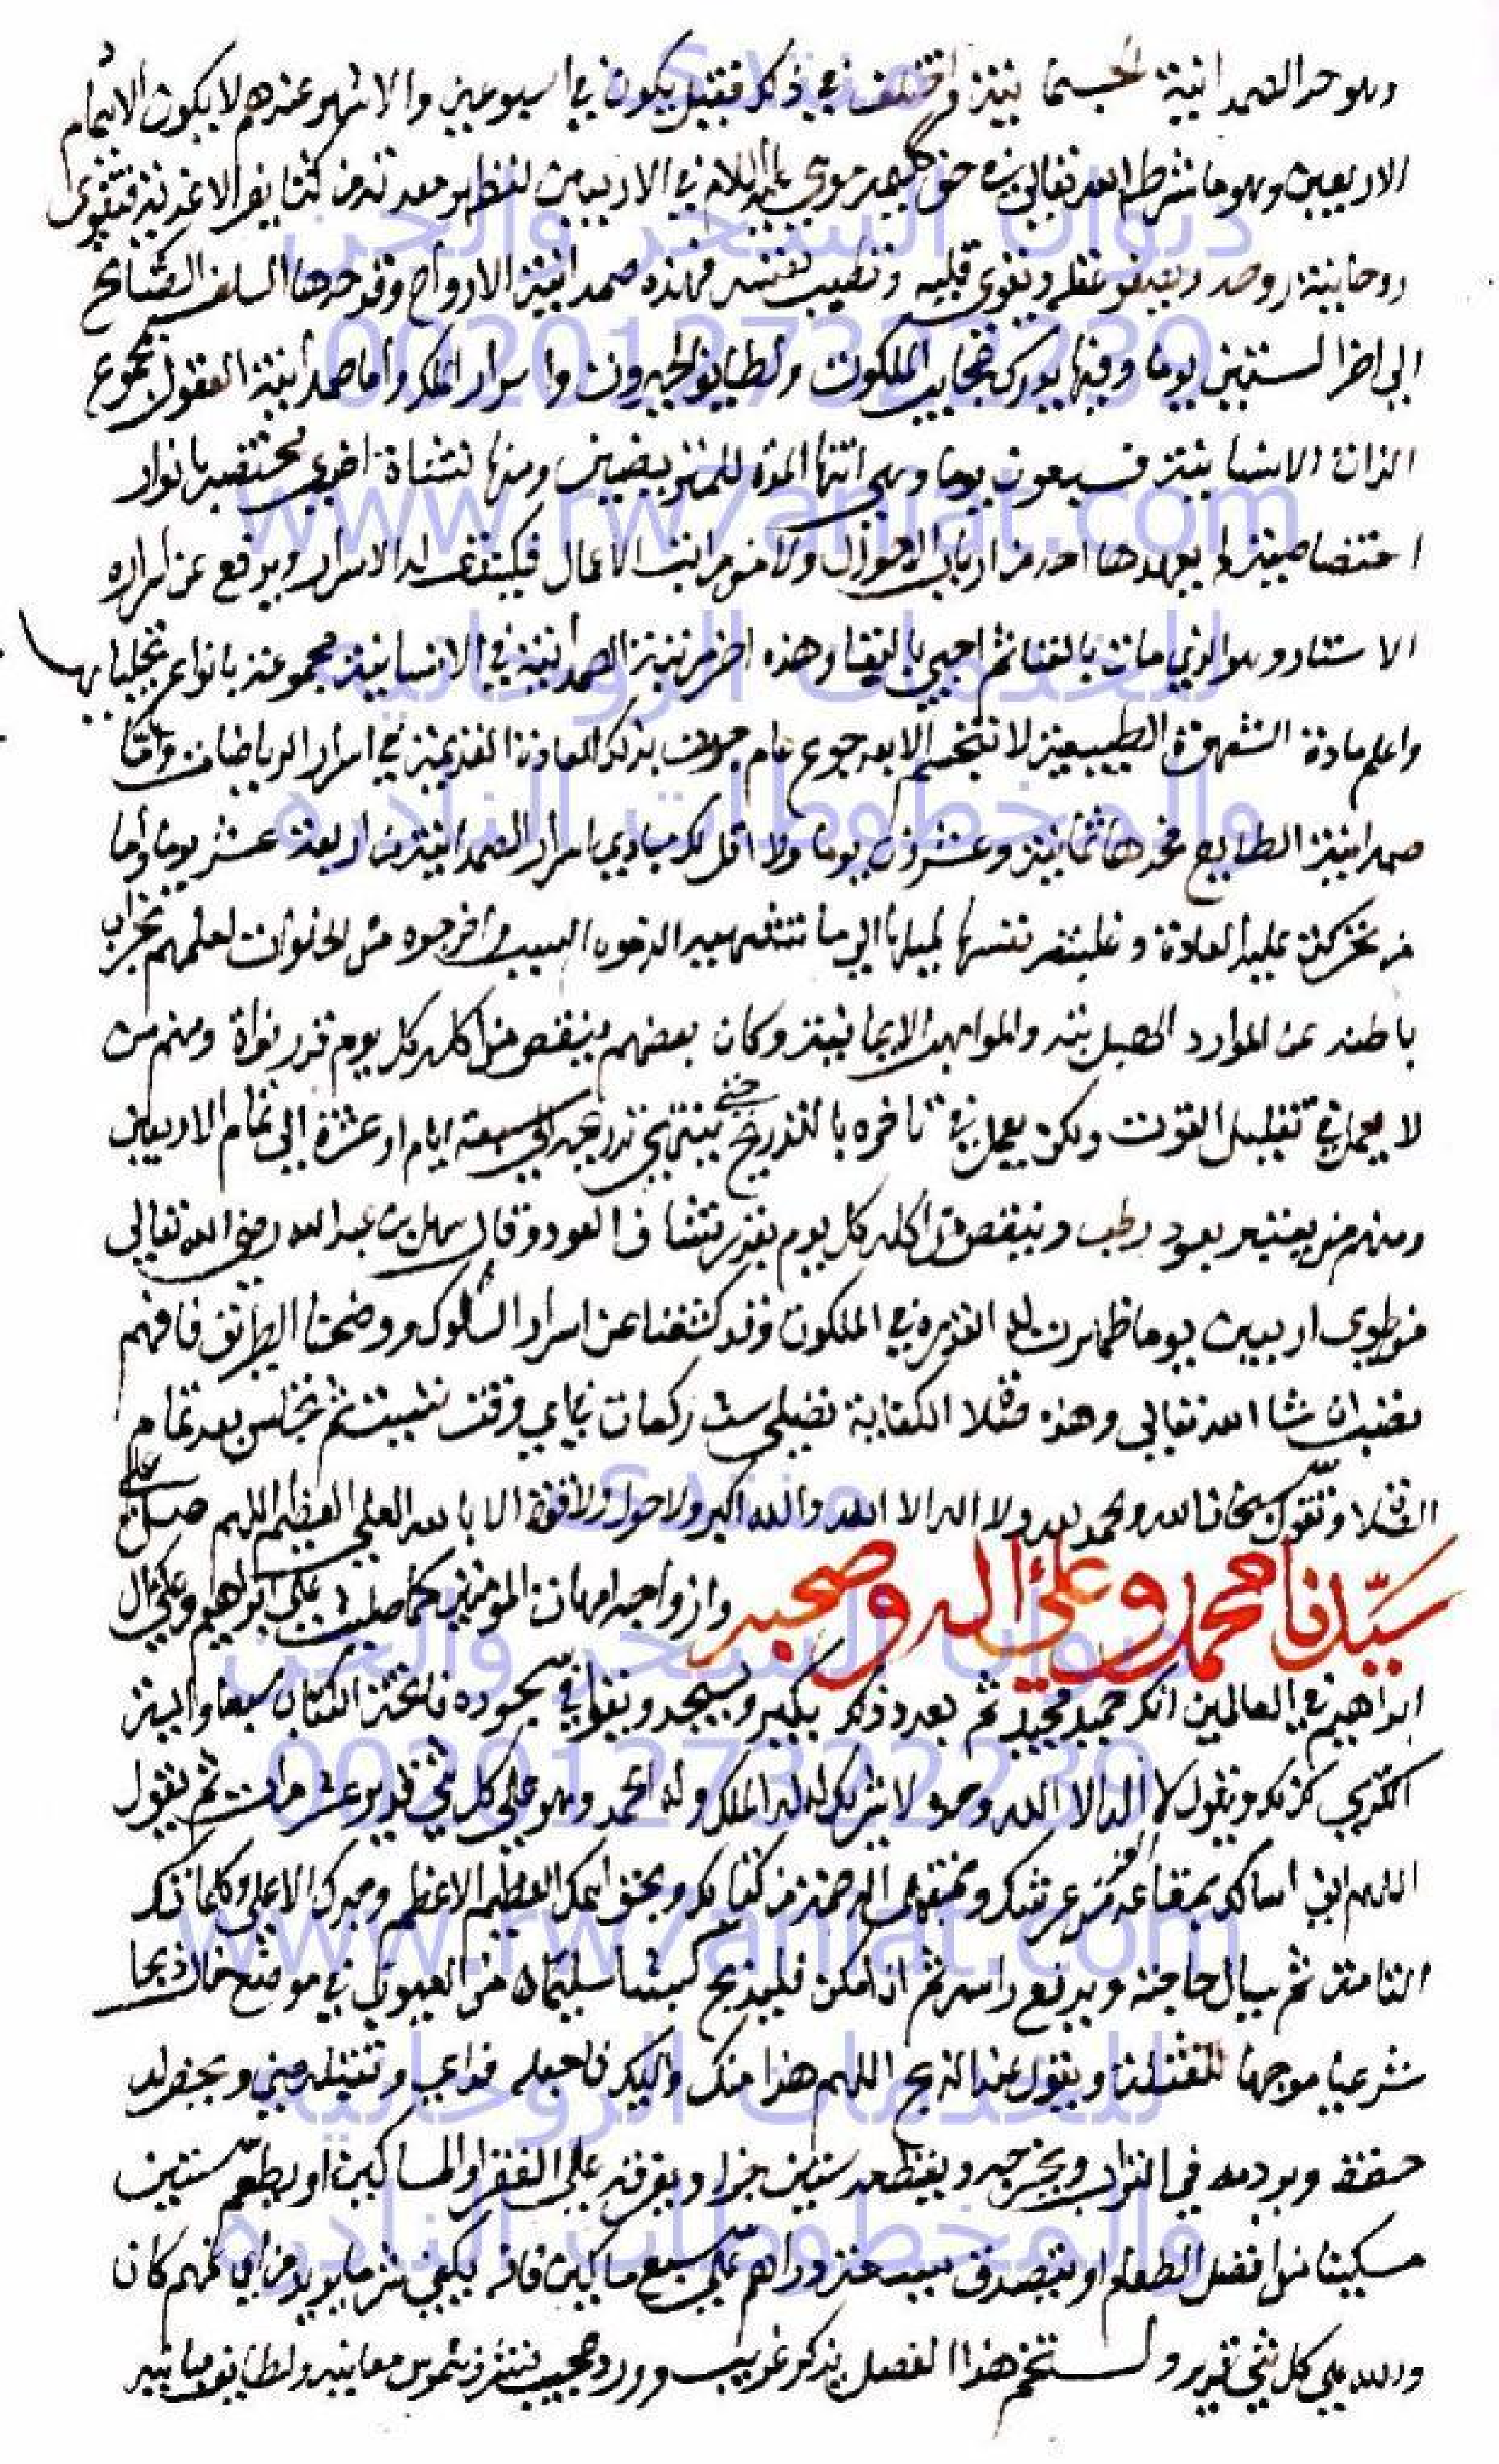 وهو حد الصمدانية الجسمانية واختلف في ذلك فقيل يكون في اسبوعين والاشهر عندهم لا يكون الا بتمام
الاربعين وهو ما شرطه الله تعالى في حق كليمه موسى عليه السلام في الاربعين لتطهر معدته من كثايف الاغذية فتقوى
روحانية روحه ويصفو عقله ويقوى قلبه وتطيب نفسه فهذه صمدانية الارواح وقد حدها السلف الصالح
الى اخر الستين يوما وفيها يدرك عجايب الملكوت ولطايف الجبروت واسرار الملك واما صمدانية العقول بمجموع
الذات الانسانية فسبعون يوما وهي انتها المدة للمتريضين ومنها نشاة اخرى مختصة بانوار
اختصاصية لم يعهدها احد من ارباب الاحوال ولا من مراتب الاعمال فيكشف له الاسرار ويرفع عن اسراره
الاستار وهو الذي مات بالفنا ثم احيي بالبقا وهذه اخر مرتبة الصمدانية في الانسانية مجموعة بانواع تجلياتها
واعلم مادة الشهوة الطبيعية لا تنحسم الا بعد جوع عام جرت بذلك العادة القديمة في اسرار الرياضات واما
صمدانية الطبايع فحدها ثمانية وعشرون يوما ولا اقل لك مبادي اسرار الصمدانية من اربعة عشر يوما واما
من تحركت عليه العادة وغلبته نفسه لميلها الى ما تشتهيه الدعوه السبب واخرجوه من الخلوات لعلمهم بخراب
باطنه عن الموارد الصهيلينه والمواهب الايمانية وكان بعضهم ينقص من اكله كل يوم قدر نواة ومنهم من
لا يعمل في تقليل القوت ولكن يعمل في تاخره بالتدريج حتى ينتهي تدريجه الى سبعة ايام او عشرة الى تمام الاربعين
ومنهم من يعتبر بعود رطب وينقص من اكله كل يوم بقدر نشاف العود وقال سهل بن عبد الله رضي الله تعالى
من طوى اربعين يوما ظهرت له القدرة في الملكوت وقد كشفنا عن اسرار السلوك ووضحنا الطرائق فافهم
تصب ان شا الله تعالى وهذه صلاة الكفاية تصلي ست ركعات في اي وقت شيت ثم تجلس بعد تمام
الصلاة وتقول سبحان الله والحمد لله ولا اله الا الله والله اكبر ولا حول ولا قوة الا بالله العلي العظيم اللهم صل على
سيدنا محمد وعلى اله وصحبه وازواجه امهات المومنين كما صليت على ابراهيم وعلى ال
ابراهيم في العالمين انك حميد مجيد ثم بعد ذلك يكبر ويسجد ويقرا في سجوده فاتحة الكتاب سبعا واية
الكرسي كذلك ويقول لا اله الا الله وحده لا شريك له له الملك وله الحمد وهو على كل شي قدير عشر مرات ثم يقول
اللهم اني اسالك بمقاعد العز من عرشك وبمنتهى الرحمة من كتابك وبحق اسمك العظيم الاعظم ومجدك الاعلى وكلماتك
التامة ثم يسال حاجته ويرفع راسه ثم ان امكن فليذبح كبشا سليما من العيوب في موضع خال ذبحا
شرعيا موجها للقبلة ويقول عند الذبح اللهم هذا منك واليك فاجعله فداي وتقبله مني ويحفر له
حفرة ويردمه في التراب ويخرجه ويقطعه ستين جزا ويفرقه على الفقرا والمساكين او يطعم ستين
مسكينا من افضل الطعام او يتصدق بسبعة دراهم على سبع مساكين فانه يكفي شر ما يريد من اي مهم كان
والله على كل شي قدير ولنختم هذا الفصل بذكر غريب وورد عجيب تشرق شموس معانيه ولطايف مبانيه
منتدى
ديوان السحر والجن
00201273 22239
www.rw7aniat.com
للخدمات الروحانية
والمخطوطات النادره
منتدى
ديوان السحر والجن
00201273 22239
www.rw7aniat.com
للخدمات الروحانية
والمخطوطات النادره